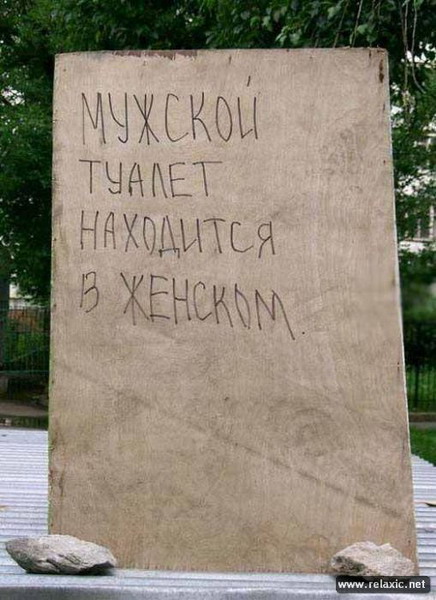 МУЖСКОЙ
ТУАЛЕТ
НАХОДИТСЯ
В ЖЕНСКОМ.
www.relaxic.net